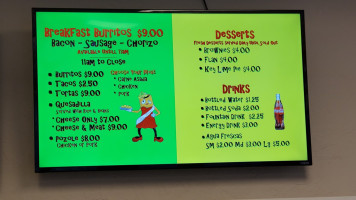 Breakfast Burritos $9.00
Bacon - Sausage - Chorizo
Available Until 11am
11am to Close
Burritos $9.00
Tacos $2.50
Tortas $9.00
Quesadilla
* Cheese Only $7.00
* Cheese & Meat $9.00
Pozole $8.00
Chicken or Pork
Choose Your Meat
* Carne Asada
* Chicken
* Pork
Desserts
Brownies $4.00
Flan $4.00
Key Lime Pie $4.00
Drinks
Bottled Water $1.25
Bottled Soda $2.00
Fountain Drink $2.25
Energy Drink $3.00
Agua Frescas
SM $2.00 Md $3.00 Lt $5.00